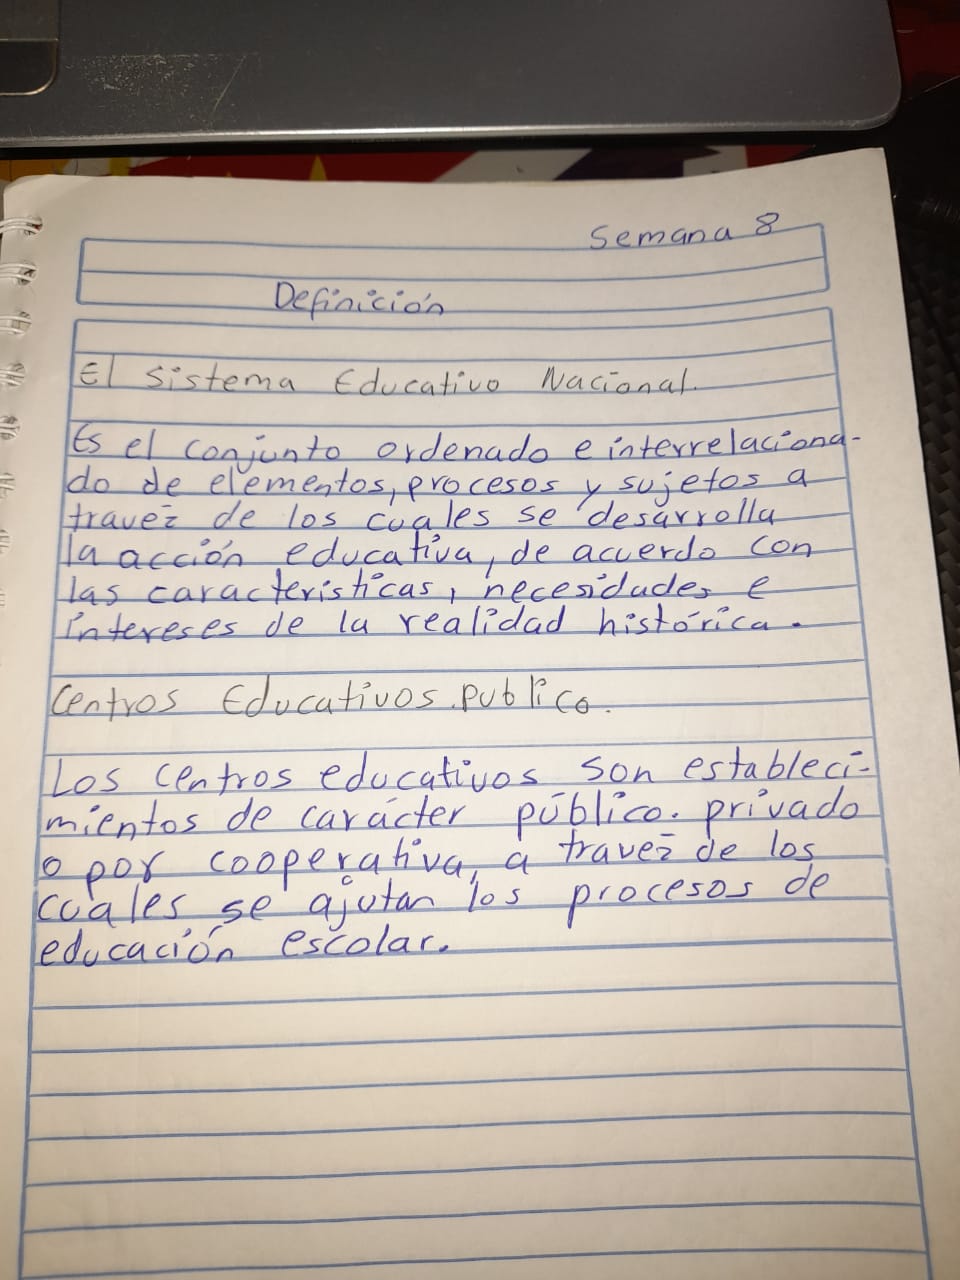 Semana 8
Definición
El Sistema Educativo Nacional.
Es el conjunto ordenado e interrelaciona-
do de elementos, procesos y sujetos a
travez de los cuales se desarrolla
la acción educativa, de acuerdo con
las características, necesidades e
intereses de la realidad histórica.
Centros Educativos publico.
Los centros educativos son estableci-
mientos de carácter público. privado
o por cooperativa, a travez de los
cuales se ajutan los procesos de
educación escolar.